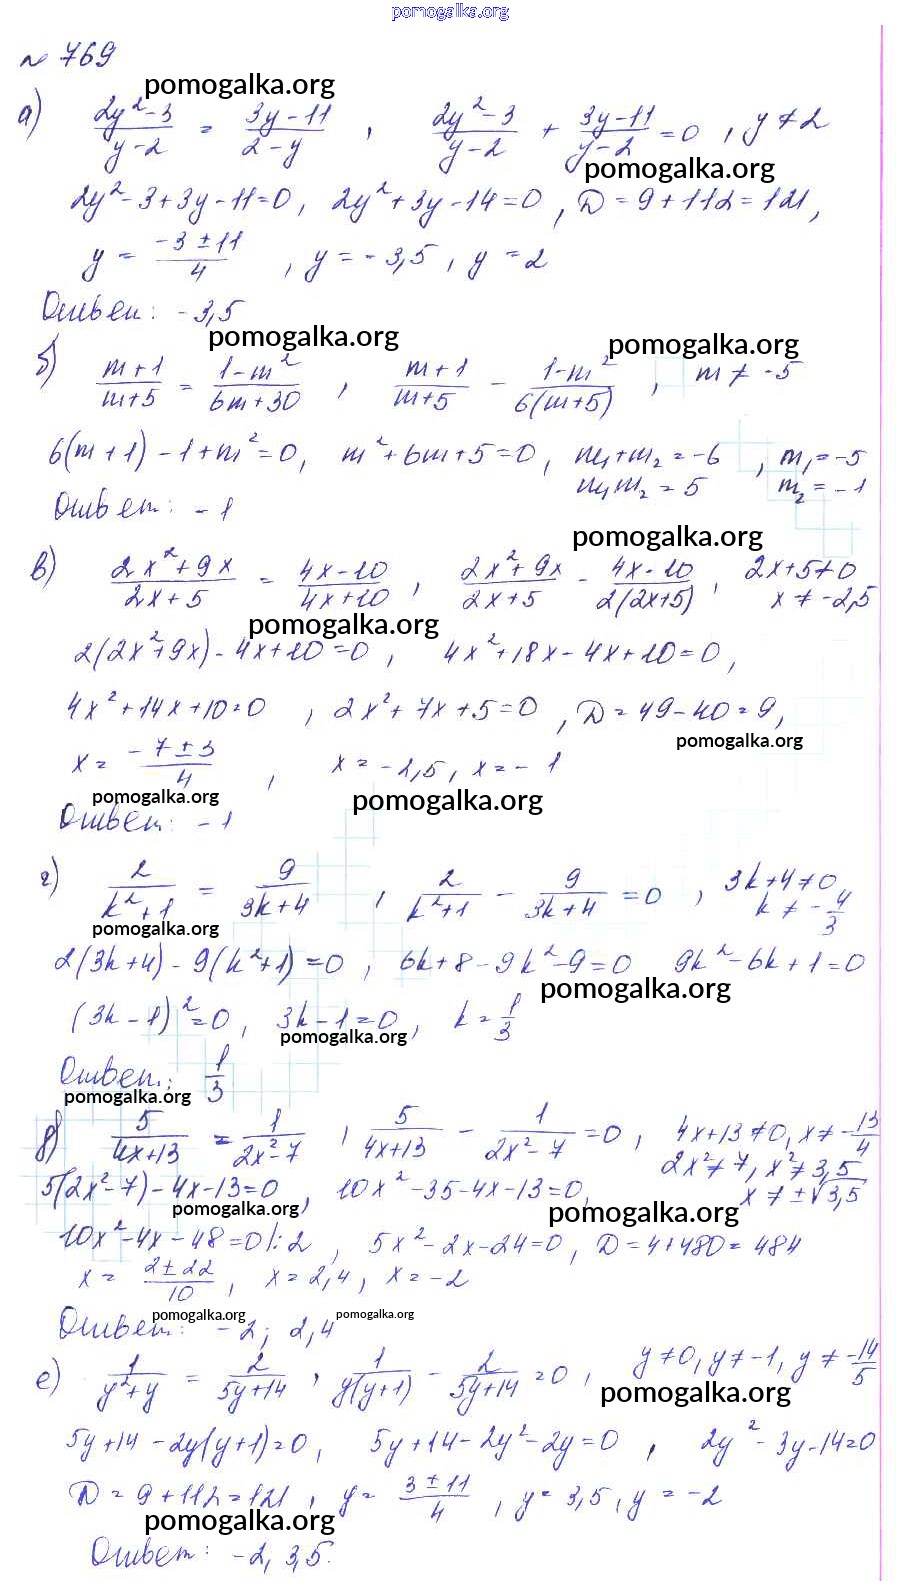 pomogalka.org
№ 769
pomogalka.org
а) (2y²-3)/(y-2) = (3y-11)/(2-y) , (2y²-3)/(y-2) + (3y-11)/(y-2) = 0 , y ≠ 2
pomogalka.org
2y²-3+3y-11=0, 2y²+3y-14=0, D=9+112=121,
y = (-3±11)/4 , y=-3,5, y=2
Ответ: -3,5
pomogalka.org pomogalka.org
б) (m+1)/(m+5) = (1-m²)/(6m+30) , (m+1)/(m+5) - (1-m²)/(6(m+5)) , m ≠ -5
6(m+1)-1+m²=0, m²+6m+5=0, m₁+m₂=-6 , m₁=-5
m₁m₂=5 m₂=-1
Ответ: -1
pomogalka.org
в) (2x²+9x)/(2x+5) = (4x-10)/(4x+10) , (2x²+9x)/(2x+5) - (4x-10)/(2(2x+5)) , 2x+5≠0
x≠-2,5
pomogalka.org
2(2x²+9x)-4x+10=0, 4x²+18x-4x+10=0,
4x²+14x+10=0 , 2x²+7x+5=0 , D=49-40=9,
pomogalka.org
x = (-7±3)/4 , x=-2,5, x=-1
pomogalka.org pomogalka.org
Ответ: -1
г) 2/(k²+1) = 9/(3k+4) , 2/(k²+1) - 9/(3k+4) = 0 , 3k+4≠0
k≠-4/3
pomogalka.org
2(3k+4)-9(k²+1)=0, 6k+8-9k²-9=0 9k²-6k+1=0
pomogalka.org
(3k-1)²=0, 3k-1=0, k=1/3
pomogalka.org
Ответ: 1/3
pomogalka.org
д) 5/(4x+13) = 1/(2x²-7) , 5/(4x+13) - 1/(2x²-7) = 0 , 4x+13≠0, x≠-13/4
2x²≠7, x²≠3,5
5(2x²-7)-4x-13=0 , 10x²-35-4x-13=0, x≠±√3,5
pomogalka.org pomogalka.org
10x²-4x-48=0 |:2 , 5x²-2x-24=0, D=4+480=484
x = (2±22)/10 , x=2,4, x=-2
pomogalka.org pomogalka.org
Ответ: -2; 2,4
е) 1/(y²+y) = 2/(5y+14) , 1/(y(y+1)) - 2/(5y+14) = 0 , y≠0, y≠-1, y≠-14/5
pomogalka.org
5y+14-2y(y+1)=0, 5y+14-2y²-2y=0 , 2y²-3y-14=0
D=9+112=121 , y = (3±11)/4 , y=3,5, y=-2
pomogalka.org
Ответ: -2, 3,5.